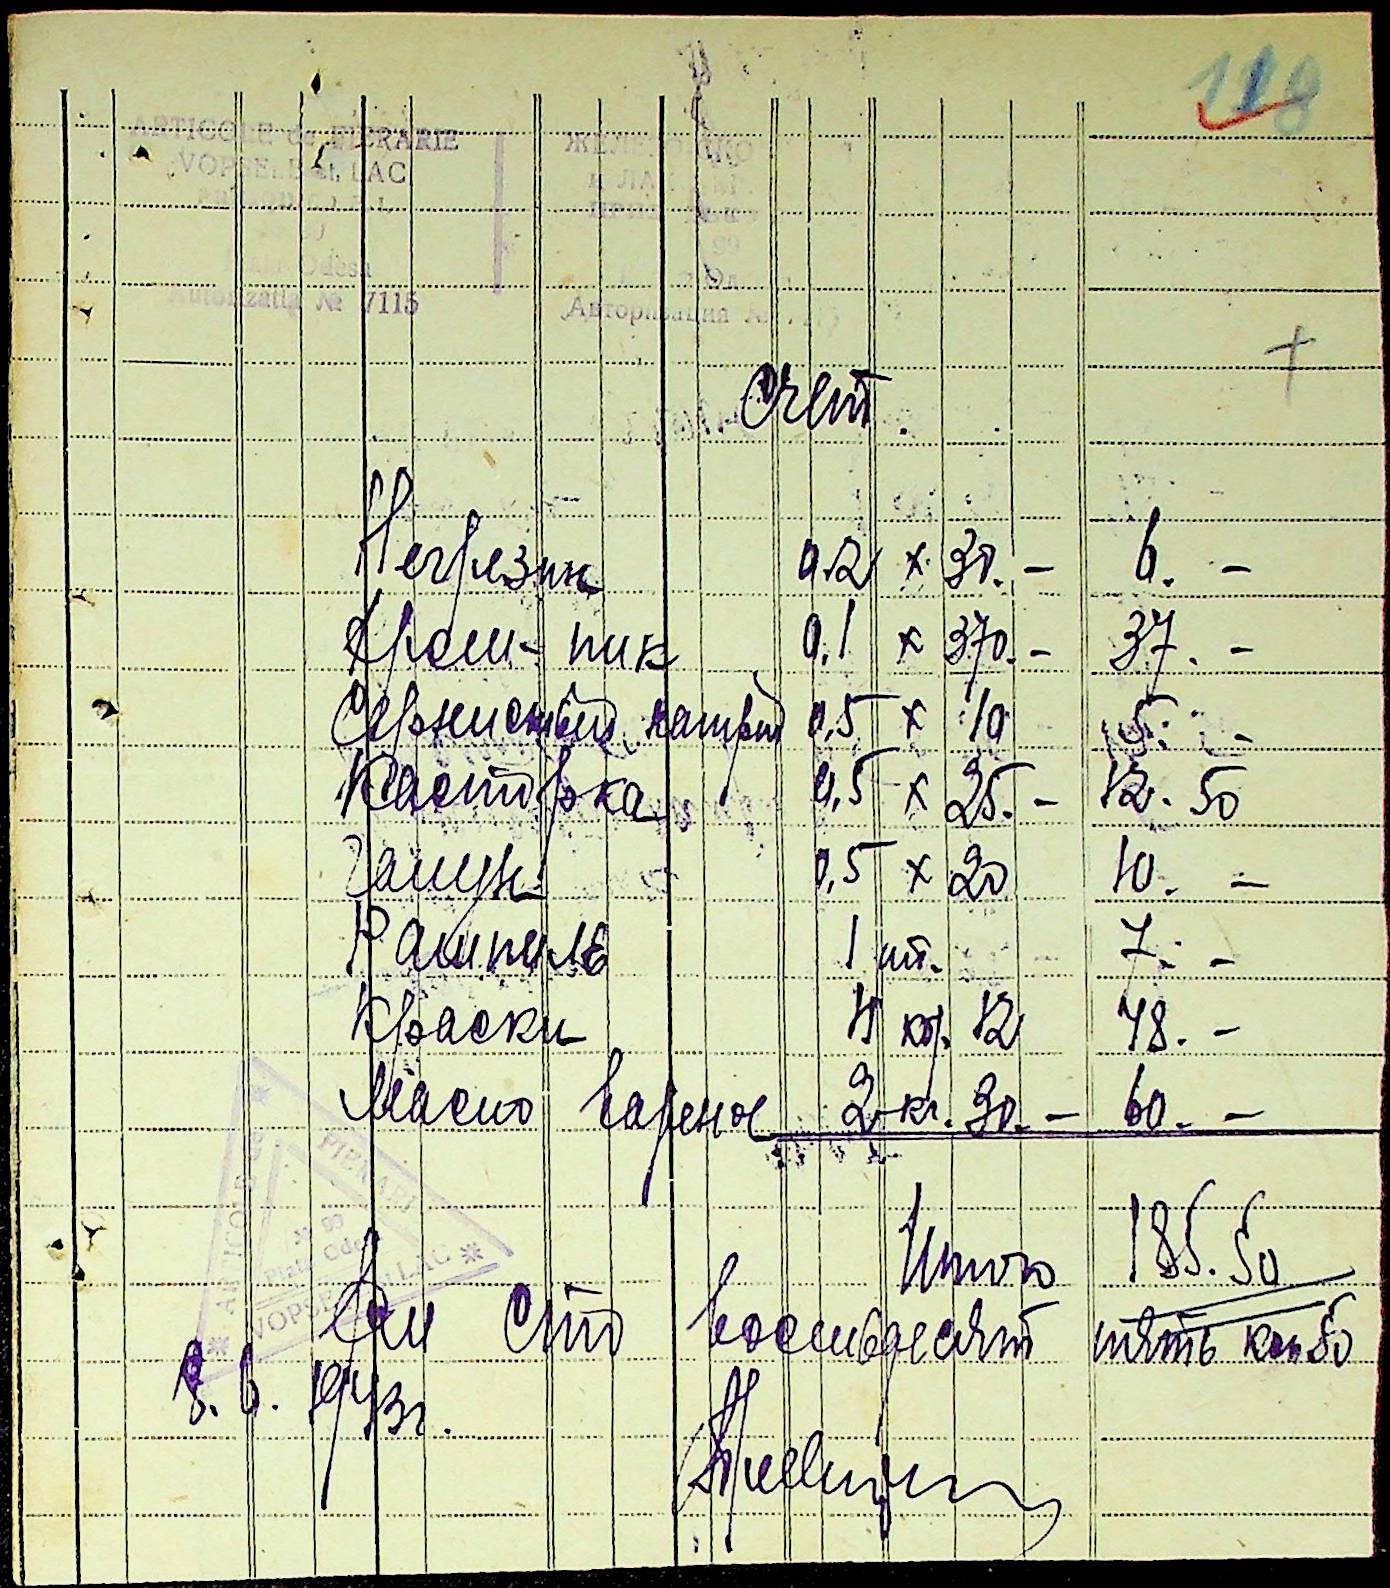 118
ARTICOLE de FIERARIE
VOPSELE si LAC
Odesa
Autorizatia № 7115
ЖЕЛЕ
и ЛА
99
Авторизация
Счет.
Негрезин 0.2 x 30. – 6. –
Хром-пик 0,1 x 370. – 37. –
Сернистый натрий 0,5 x 10 5. –
Касторка 0,5 x 25. – 12. 50
Галун 0,5 x 20 10. –
Рашпиль 1 шт. 7. –
Краски 4 кг. 12 48. –
Масло вареное 2 кг. 30. – 60. –
Итого 185. 50
сто восемьдесят пять коп 50
8. 6. 1943г.
FIERARI
№ 99
Piata Ode
VOPSE LAC